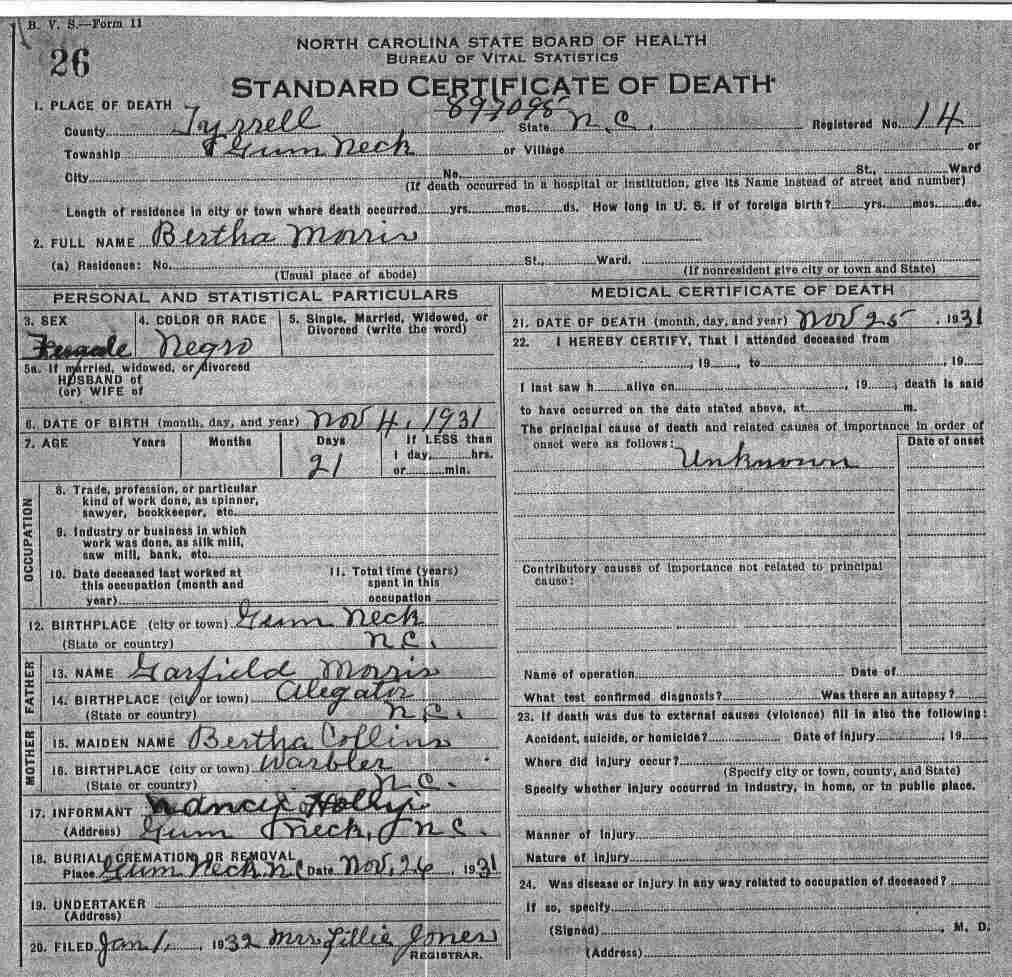 B. V. S.—Form 11
26
NORTH CAROLINA STATE BOARD OF HEALTH
BUREAU OF VITAL STATISTICS
STANDARD CERTIFICATE OF DEATH
1. PLACE OF DEATH 897095
County Tyrrell State N.C. Registered No. 14
Township Gum Neck or Village or
City No. St., Ward
(If death occurred in a hospital or institution, give its Name instead of street and number)
Length of residence in city or town where death occurred yrs. mos. ds. How long in U. S. if of foreign birth? yrs. mos. ds.
2. FULL NAME Bertha Morris
(a) Residence: No. St., Ward.
(Usual place of abode) (If nonresident give city or town and State)
PERSONAL AND STATISTICAL PARTICULARS
3. SEX 4. COLOR OR RACE 5. Single, Married, Widowed, or
Divorced (write the word)
Female Negro
5a. If married, widowed, or divorced
HUSBAND of
(or) WIFE of
6. DATE OF BIRTH (month, day, and year) Nov 4, 1931
7. AGE Years Months Days If LESS than
1 day, hrs.
21 or min.
OCCUPATION
8. Trade, profession, or particular
kind of work done, as spinner,
sawyer, bookkeeper, etc.
9. Industry or business in which
work was done, as silk mill,
saw mill, bank, etc.
10. Date deceased last worked at 11. Total time (years)
this occupation (month and spent in this
year) occupation
12. BIRTHPLACE (city or town) Gum Neck
(State or country) N.C.
FATHER
13. NAME Garfield Morris
14. BIRTHPLACE (city or town) Alegator
(State or country) N.C.
MOTHER
15. MAIDEN NAME Bertha Collins
16. BIRTHPLACE (city or town) Warbler
(State or country) N.C.
17. INFORMANT Nancy Holly
(Address) Gum Neck, N.C.
18. BURIAL, CREMATION, OR REMOVAL
Place Gum Neck N.C Date Nov. 26, 1931
19. UNDERTAKER
(Address)
20. FILED Jan 1, 1932 Mrs Lillie Jones
REGISTRAR.
MEDICAL CERTIFICATE OF DEATH
21. DATE OF DEATH (month, day, and year) Nov 25, 1931
22. I HEREBY CERTIFY, That I attended deceased from
, 19 , to , 19
I last saw h alive on , 19 , death is said
to have occurred on the date stated above, at m.
The principal cause of death and related causes of importance in order of
onset were as follows: Date of onset
Unknown
Contributory causes of importance not related to principal
cause:
Name of operation Date of
What test confirmed diagnosis? Was there an autopsy?
23. If death was due to external causes (violence) fill in also the following:
Accident, suicide, or homicide? Date of injury , 19
Where did injury occur?
(Specify city or town, county, and State)
Specify whether injury occurred in industry, in home, or in public place.
Manner of injury
Nature of injury
24. Was disease or injury in any way related to occupation of deceased?
If so, specify
(Signed) , M. D.
(Address)